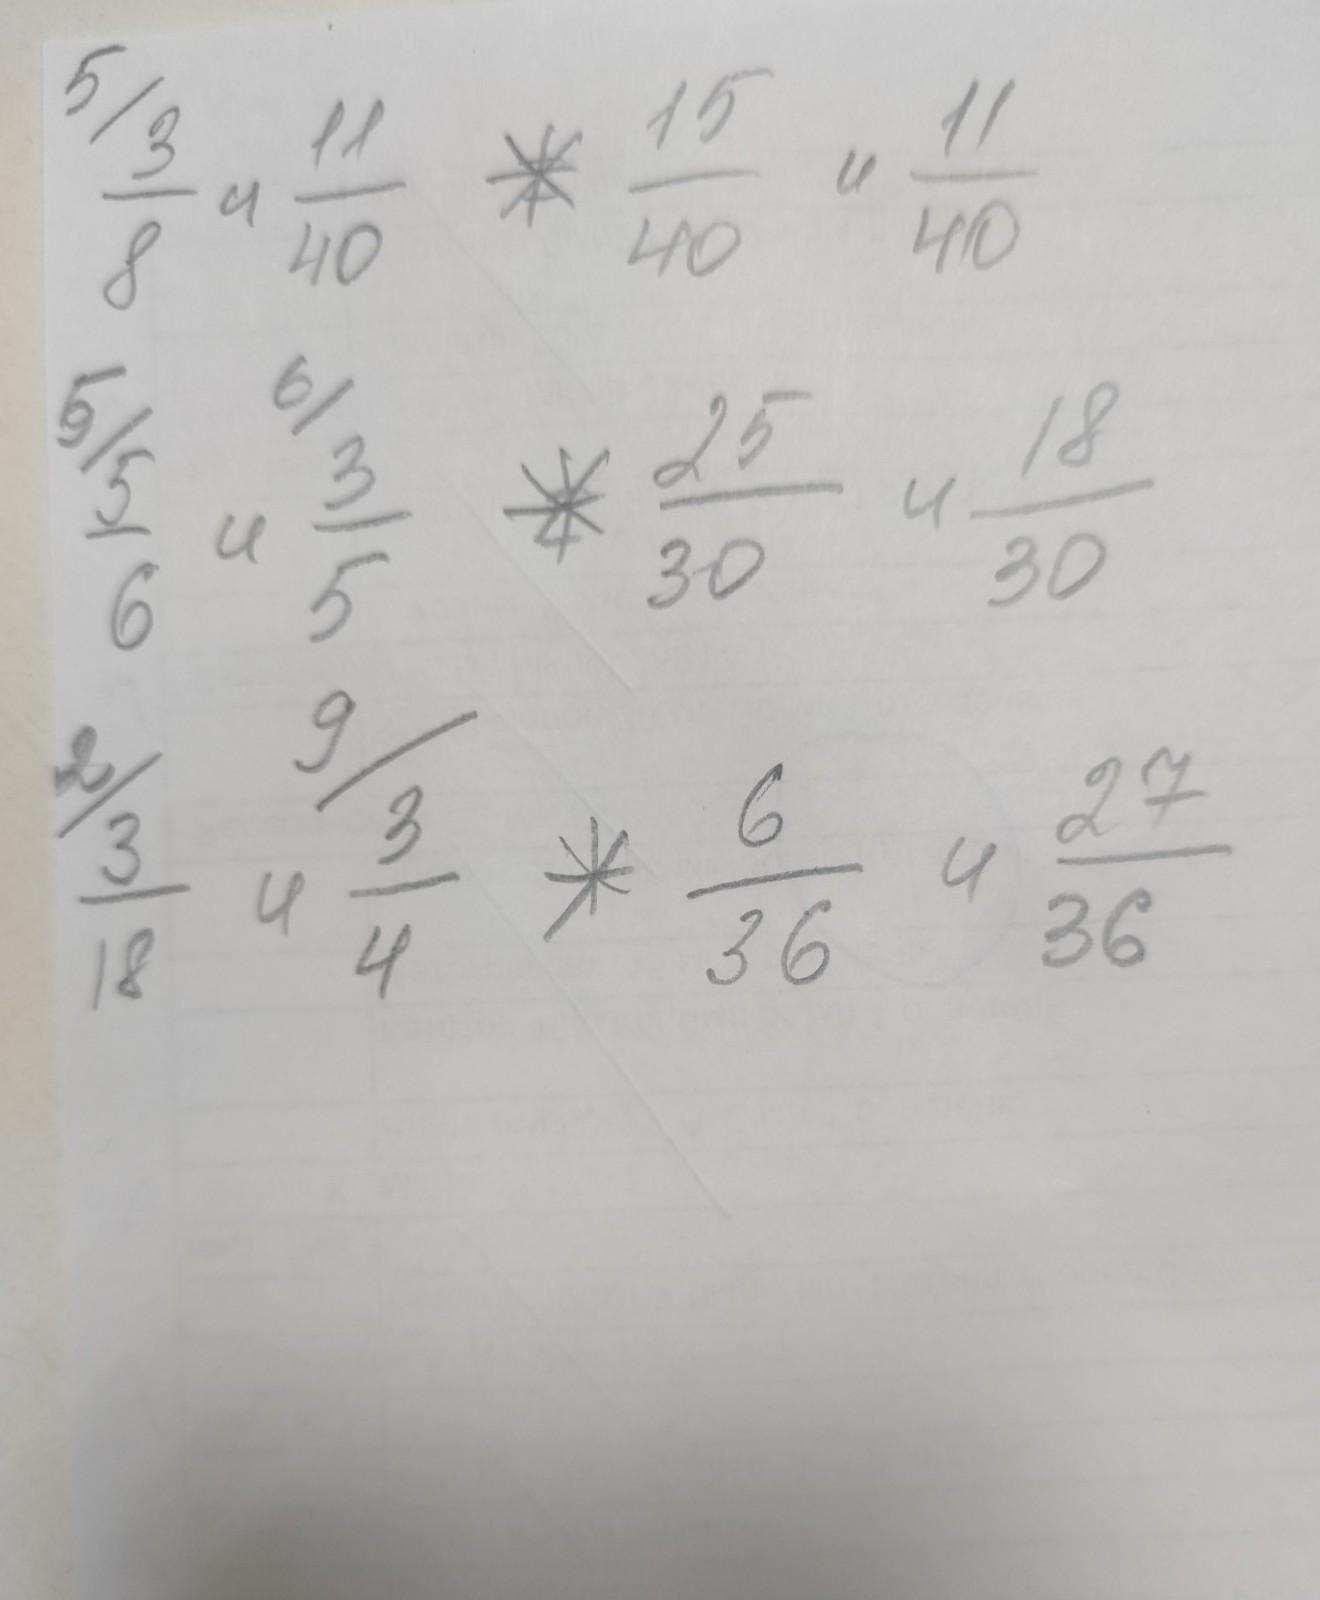 5/ 3/8 и 11/40 * 15/40 и 11/40
5/ 5/6 и 6/ 3/5 * 25/30 и 18/30
2/ 3/18 и 9/ 3/4 * 6/36 и 27/36